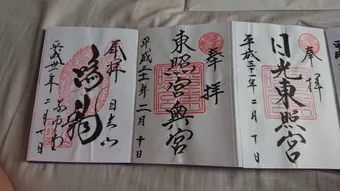 奉拝
日光東照宮
平成二十一年二月十日
奉拝
東照宮奥宮
平成二十一年二月十日
奉拝
日光山
鳴龍
平成廿一年二月十日